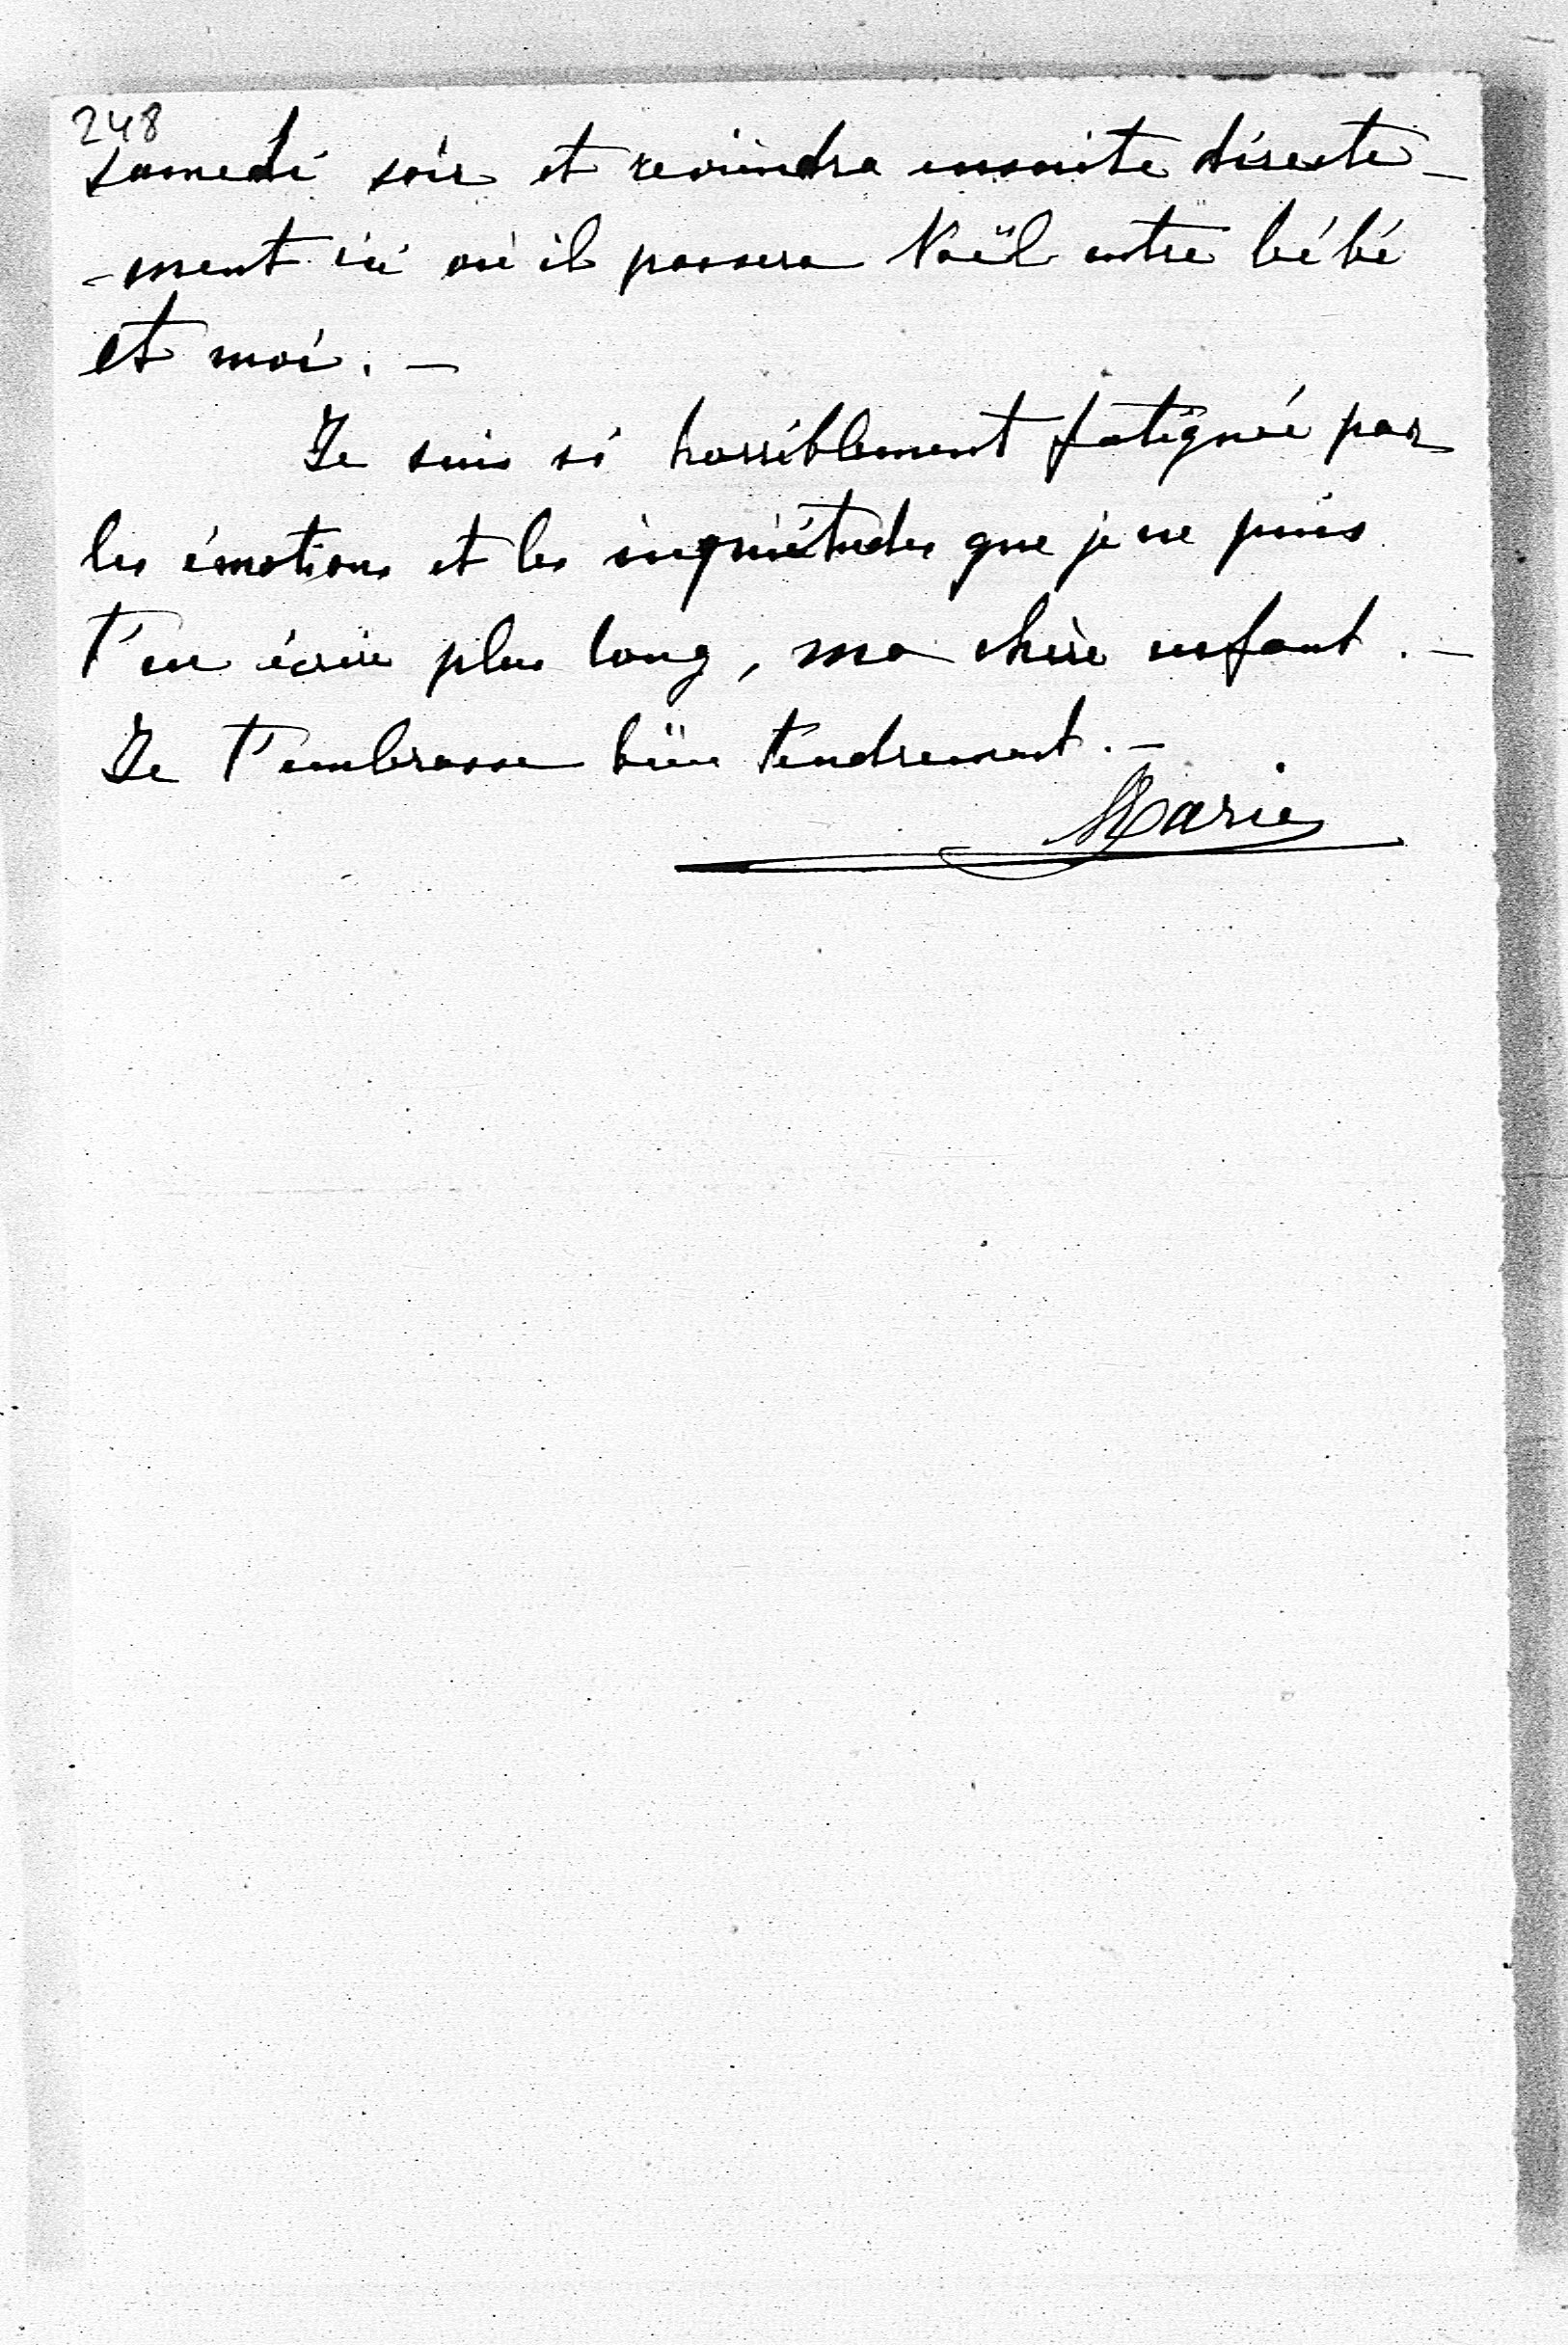 248
samedi soir et reviendra ensuite directe-
-ment ici où il passera Noël entre bébé
et moi. —
Je suis si horriblement fatiguée par
les émotions et les inquiétudes que je ne puis
t'en écrire plus long, ma chère enfant. —
Je t'embrasse bien tendrement. —
Marie